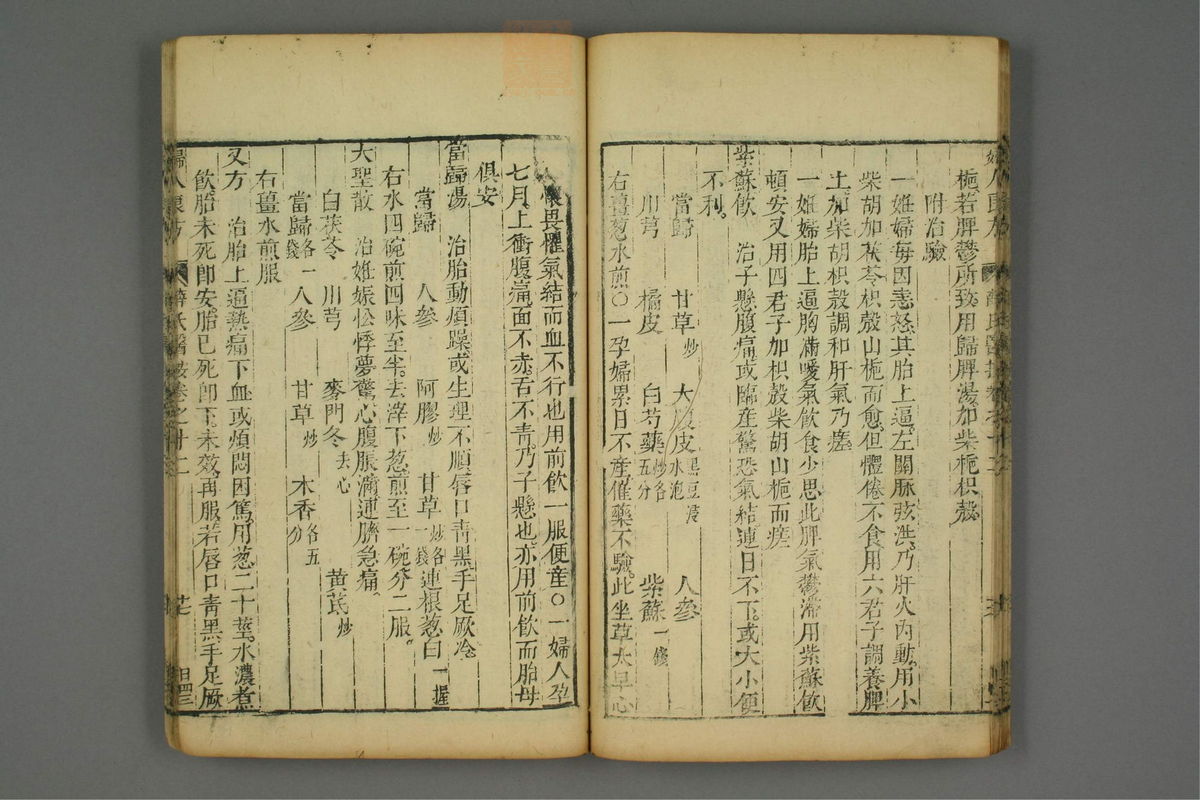 梔若脾鬱所致用歸脾湯加柴梔枳殼
附治驗
一姙婦每因恚怒其胎上逼左關脉弦洪乃肝火內動用小
柴胡加茯苓枳殼山梔而愈但體倦不食用六君子調養脾
土加柴胡枳殼調和肝氣乃瘥
一姙婦胎上逼胸滿噯氣飲食少思此脾氣鬱滯用紫蘇飲
頓安又用四君子加枳殼柴胡山梔而瘥
紫蘇飲 治子懸腹痛或臨產驚恐氣結連日不下或大小便
不利
當歸 甘草炒 大腹皮黑豆浸水泡 人參
川芎 橘皮 白芍藥炒各五分 紫蘇一錢
右薑葱水煎○一孕婦累日不產催藥不驗此坐草太早心
懷畏懼氣結而血不行也用前飲一服便產○一婦人孕
七月上衝腹痛面不赤舌不青乃子懸也亦用前飲而胎母
俱安
當歸湯 治胎動煩躁或生理不順唇口青黑手足厥冷
當歸 人參 阿膠炒 甘草炒各一錢 連根葱白一握
右水四碗煎四味至半去滓下葱煎至一碗分二服
大聖散 治姙娠忪悸夢驚心腹脹滿連臍急痛
白茯苓 川芎 麥門冬去心 黃芪炒
當歸各一錢 人參 甘草炒 木香各五分
右薑水煎服
又方 治胎上逼熱痛下血或煩悶困篤用葱二十莖水濃煮
飲胎未死卽安胎已死卽下未效再服若唇口青黑手足厥
婦人良方 薛氏醫按卷之十二